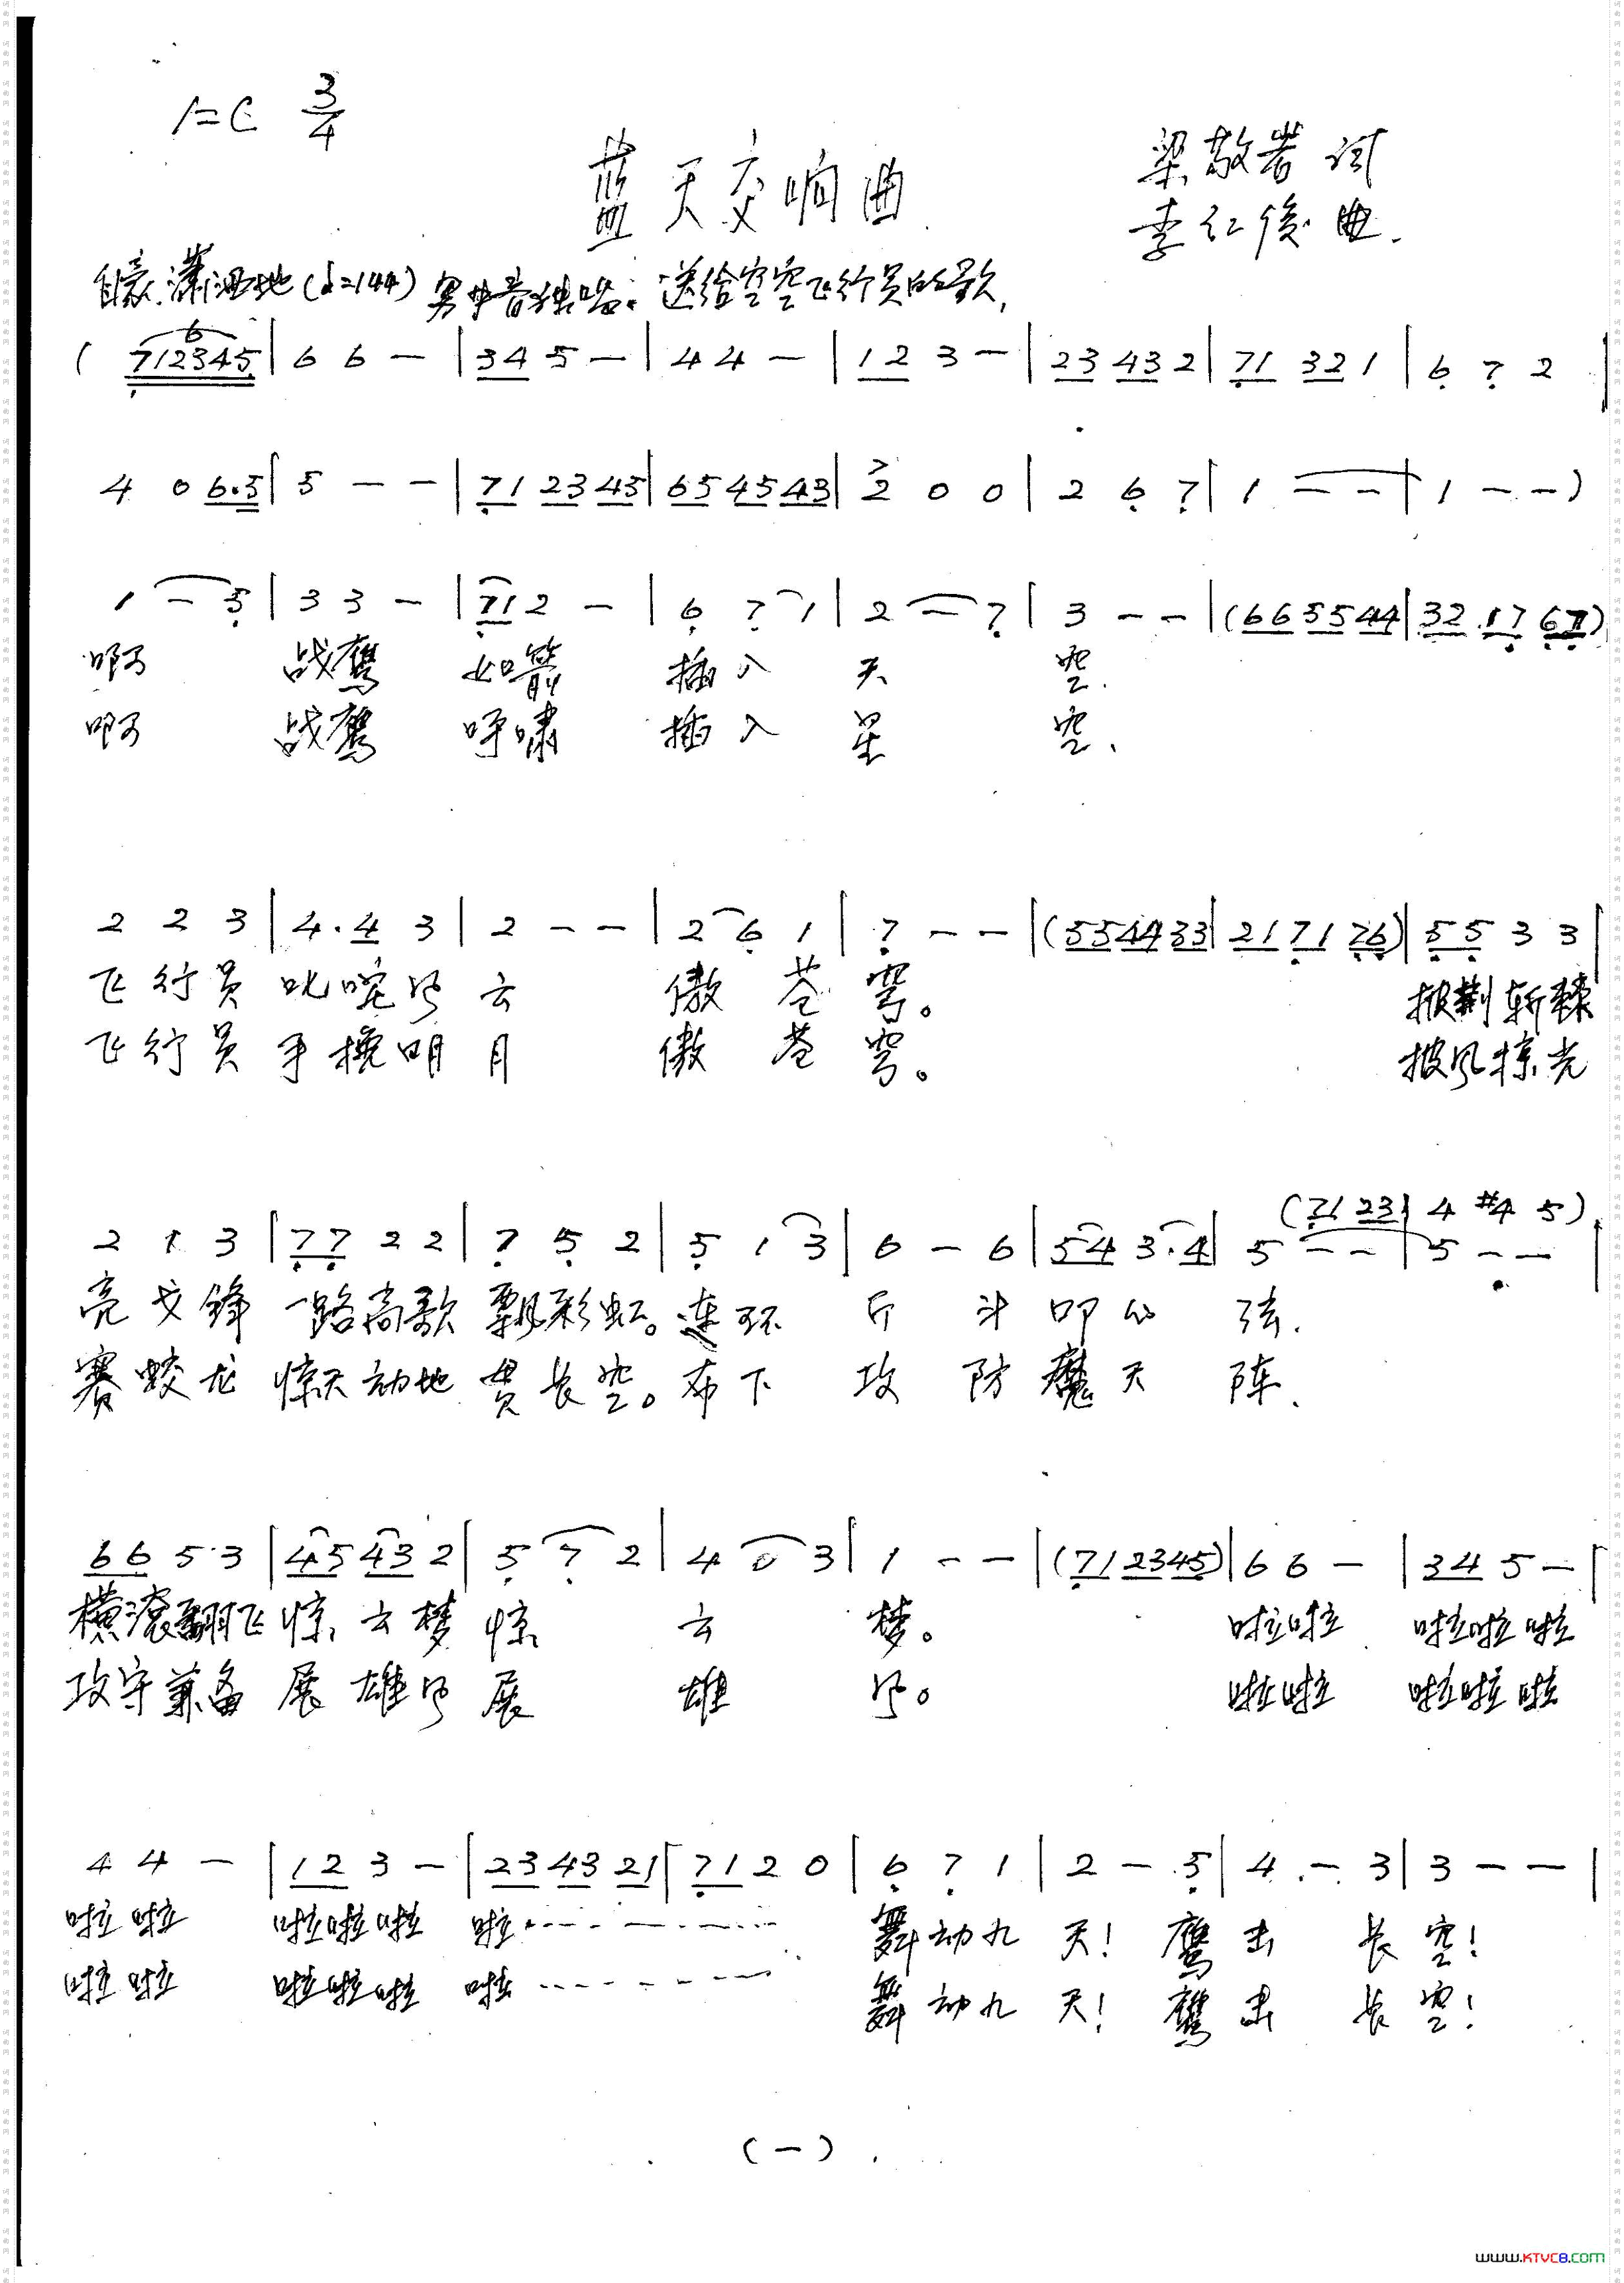 1=C 3/4
蓝天交响曲
梁敬岩 词
李红俊 曲.
自豪.潇洒地(♩=144) 男中音独唱: 送给空军飞行员的歌,
6
( 712345 | 6 6 — | 34 5 — | 4 4 — | 12 3 — | 23 43 2 | 71 32 1 | 6 7 2 |
4 0 6.5 | 5 — — | 71 23 45 | 65 45 43 | 2 0 0 | 2 6 7 | 1 — — | 1 — — )
1 — 5 | 3 3 — | 71 2 — | 6 7 1 | 2 — 7 | 3 — — | (66 55 44 | 32 17 67)
啊 战鹰 如箭 插入 天 空.
啊 战鹰 呼啸 插入 星 空、
2 2 3 | 4.4 3 | 2 — — | 2 6 1 | 7 — — | (55 44 33 | 21 71 76) | 55 3 3 |
飞行员 叱咤风云 傲苍穹。 披荆斩棘
飞行员 手挽明月 傲苍穹。 披风掠光
(71 23 | 4 #4 5)
2 1 3 | 77 2 2 | 7 5 2 | 5 1 3 | 6 — 6 | 54 3.4 | 5 — — | 5 — — |
亮戈锋 一路高歌 飘彩虹。连环 斤 斗 叩心 弦.
赛蛟龙 惊天动地 贯长空。布下 攻 防 魔天 阵.
66 5 3 | 45 43 2 | 5 7 2 | 4 0 3 | 1 — — | (71 23 45) | 6 6 — | 34 5 — |
横滚翻飞 惊云梦 惊 云 梦。 啦啦 啦啦啦
攻守兼备 展雄风 展 雄 风。 啦啦 啦啦啦
4 4 — | 12 3 — | 23 43 21 | 71 2 0 | 6 7 1 | 2 — 5 | 4 — 3 | 3 — — |
啦啦 啦啦啦 啦…… 舞动九 天! 鹰击 长空!
啦啦 啦啦啦 啦…… 舞动九 天! 鹰击 长空!
(一)
www.KTVC8.com